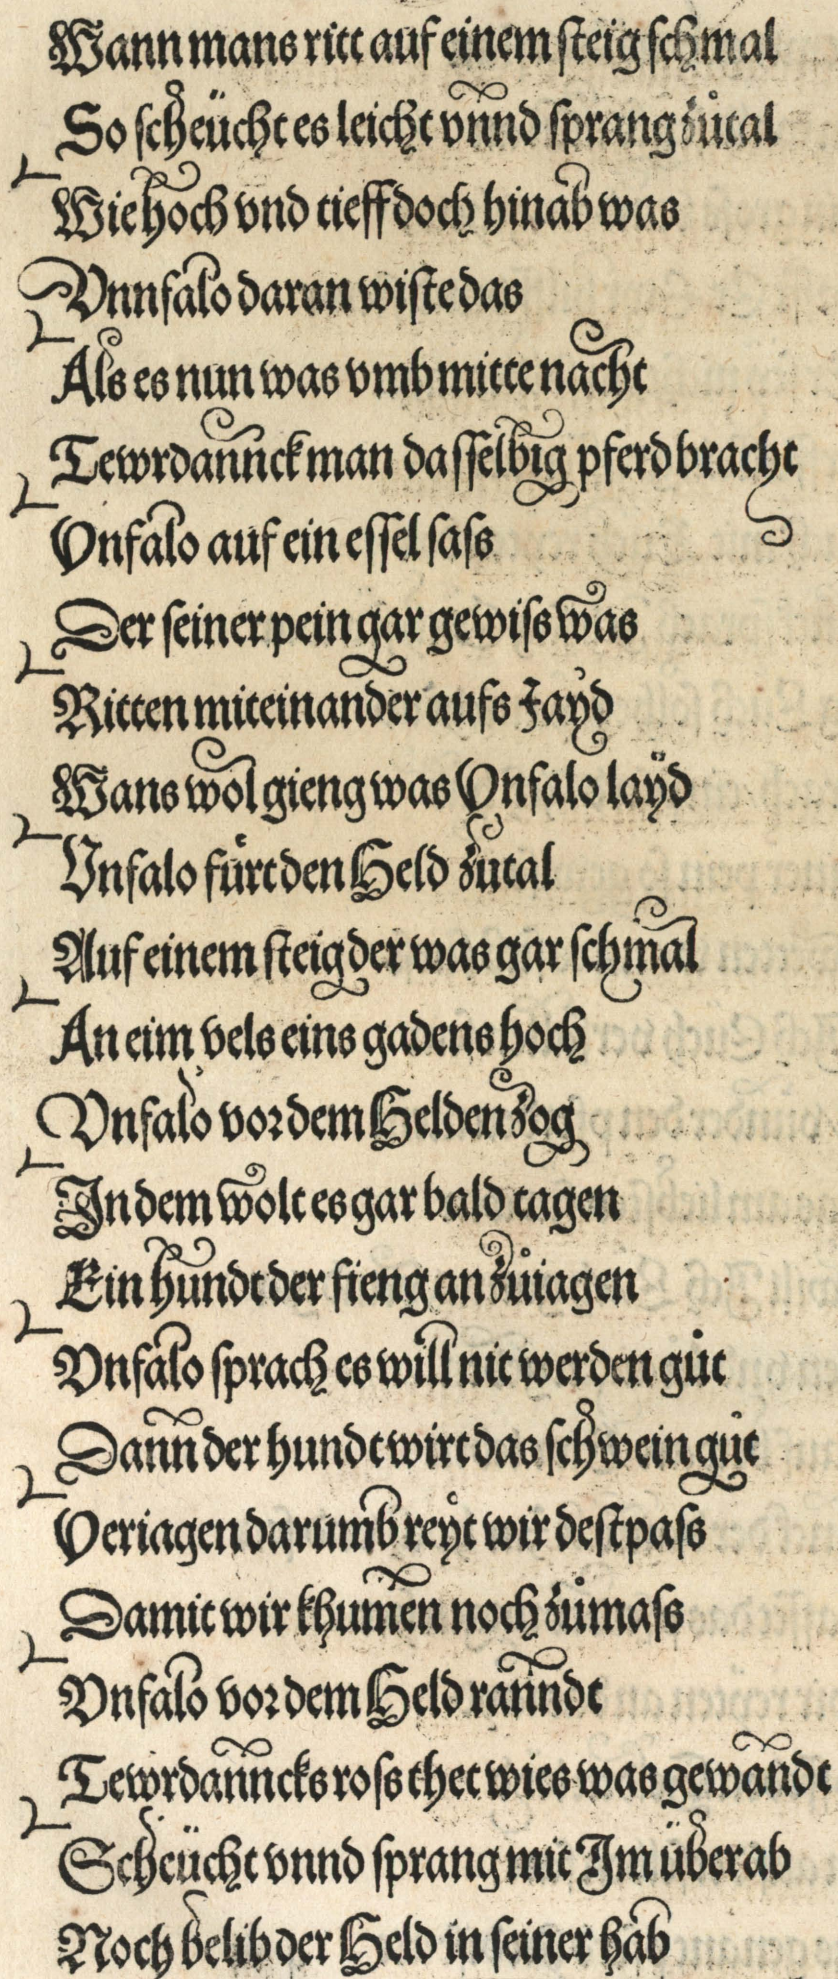 Wann mans ritt auf einem steig schmal
So scheücht es leicht vnnd sprang zůtal
Wie hoch vnd tieff doch hinab was
Vnnfalo daran wiste das
Als es nun was vmb mitte nacht
Tewrdannck man dasselbig pferd bracht
Vnfalo auf ein essel sass
Der seiner pein gar gewiss was
Ritten miteinander aufs Jayd
Wans wol gieng was Vnfalo layd
Vnfalo fůrt den Held zutal
Auf einem steig der was gar schmal
An eim vels eins gadens hoch
Vnfalo vor dem Helden zog
In dem wolt es gar bald tagen
Ein hundt der fieng an zůiagen
Vnfalo sprach es will nit werden gůt
Dann der hundt wirt das schwein gůt
Veriagen darumb reyt wir destpass
Damit wir khumen noch zůmass
Vnfalo vor dem Held ranndt
Tewrdanncks ross thet wies was gewandt
Scheücht vnnd sprang mit Im überab
Noch belib der Held in seiner hab